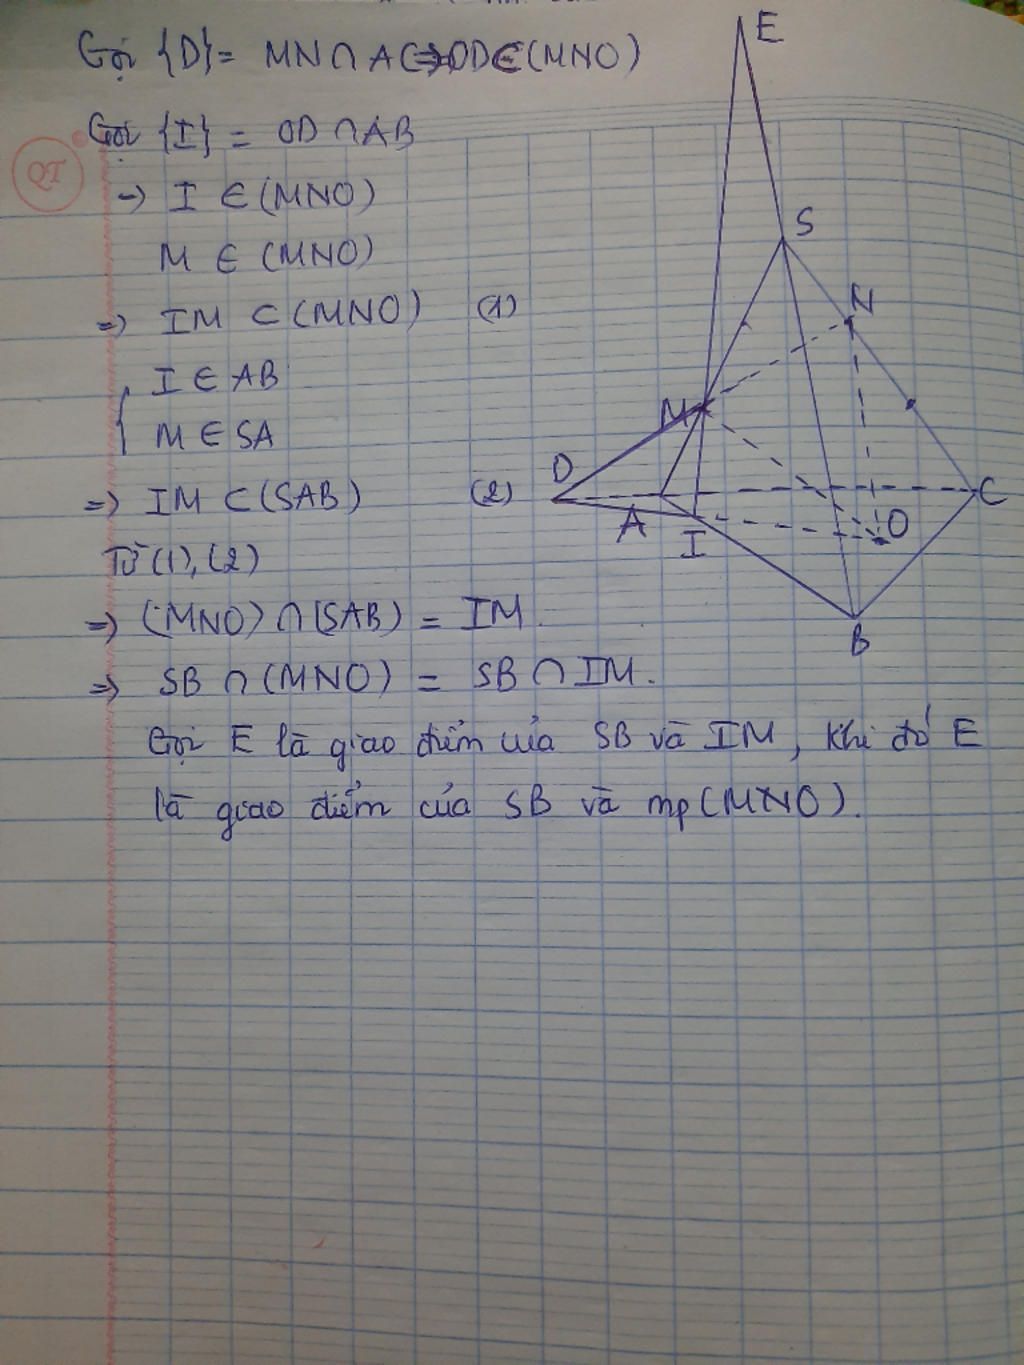 Gọi {D} = MN ∩ AC => OD ∈ (MNO)
Gọi {I} = OD ∩ AB
=> I ∈ (MNO)
M ∈ (MNO)
=> IM ⊂ (MNO) (1)
{ I ∈ AB
M ∈ SA
=> IM ⊂ (SAB) (2)
Từ (1), (2)
=> (MNO) ∩ (SAB) = IM.
=> SB ∩ (MNO) = SB ∩ IM.
Gọi E là giao điểm của SB và IM, khi đó E
là giao điểm của SB và mp (MNO).
E
S
N
M
D
A
I
O
C
B
QT